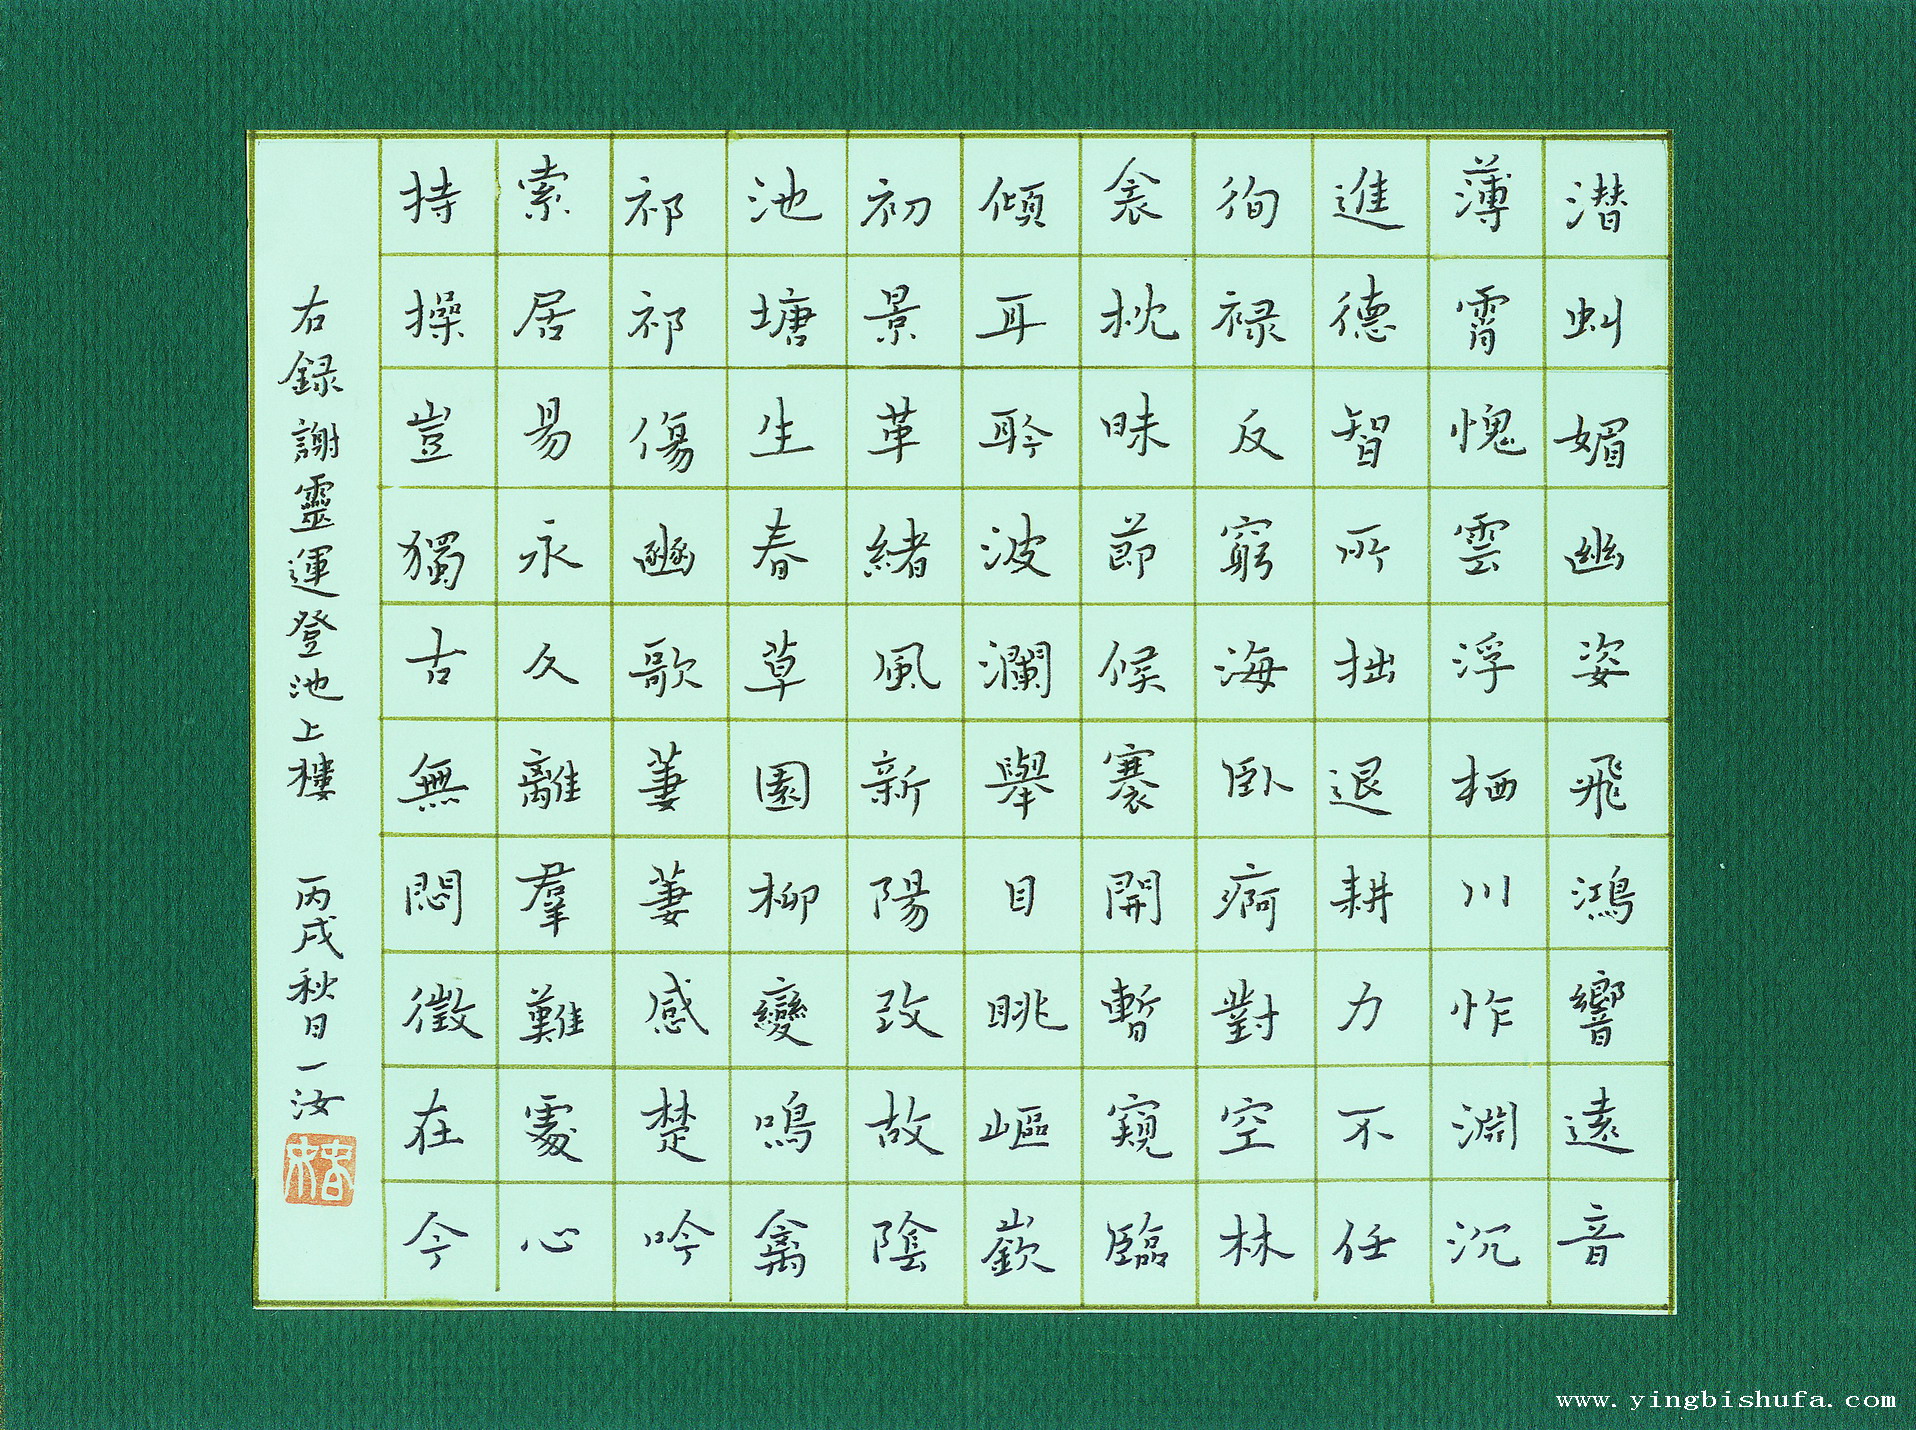 潜虯媚幽姿飛鴻響遠音
薄霄愧雲浮栖川怍淵沉
進德智所拙退耕力不任
徇禄反窮海臥痾對空林
衾枕昧節候褰開暫窺臨
傾耳聆波瀾舉目眺嶇嶔
初景革緒風新陽改故陰
池塘生春草園柳變鳴禽
祁祁傷豳歌萋萋感楚吟
索居易永久離羣難處心
持操豈獨古無悶徵在今
右録謝靈運登池上樓 丙戌秋日一汝
www.yingbishufa.com